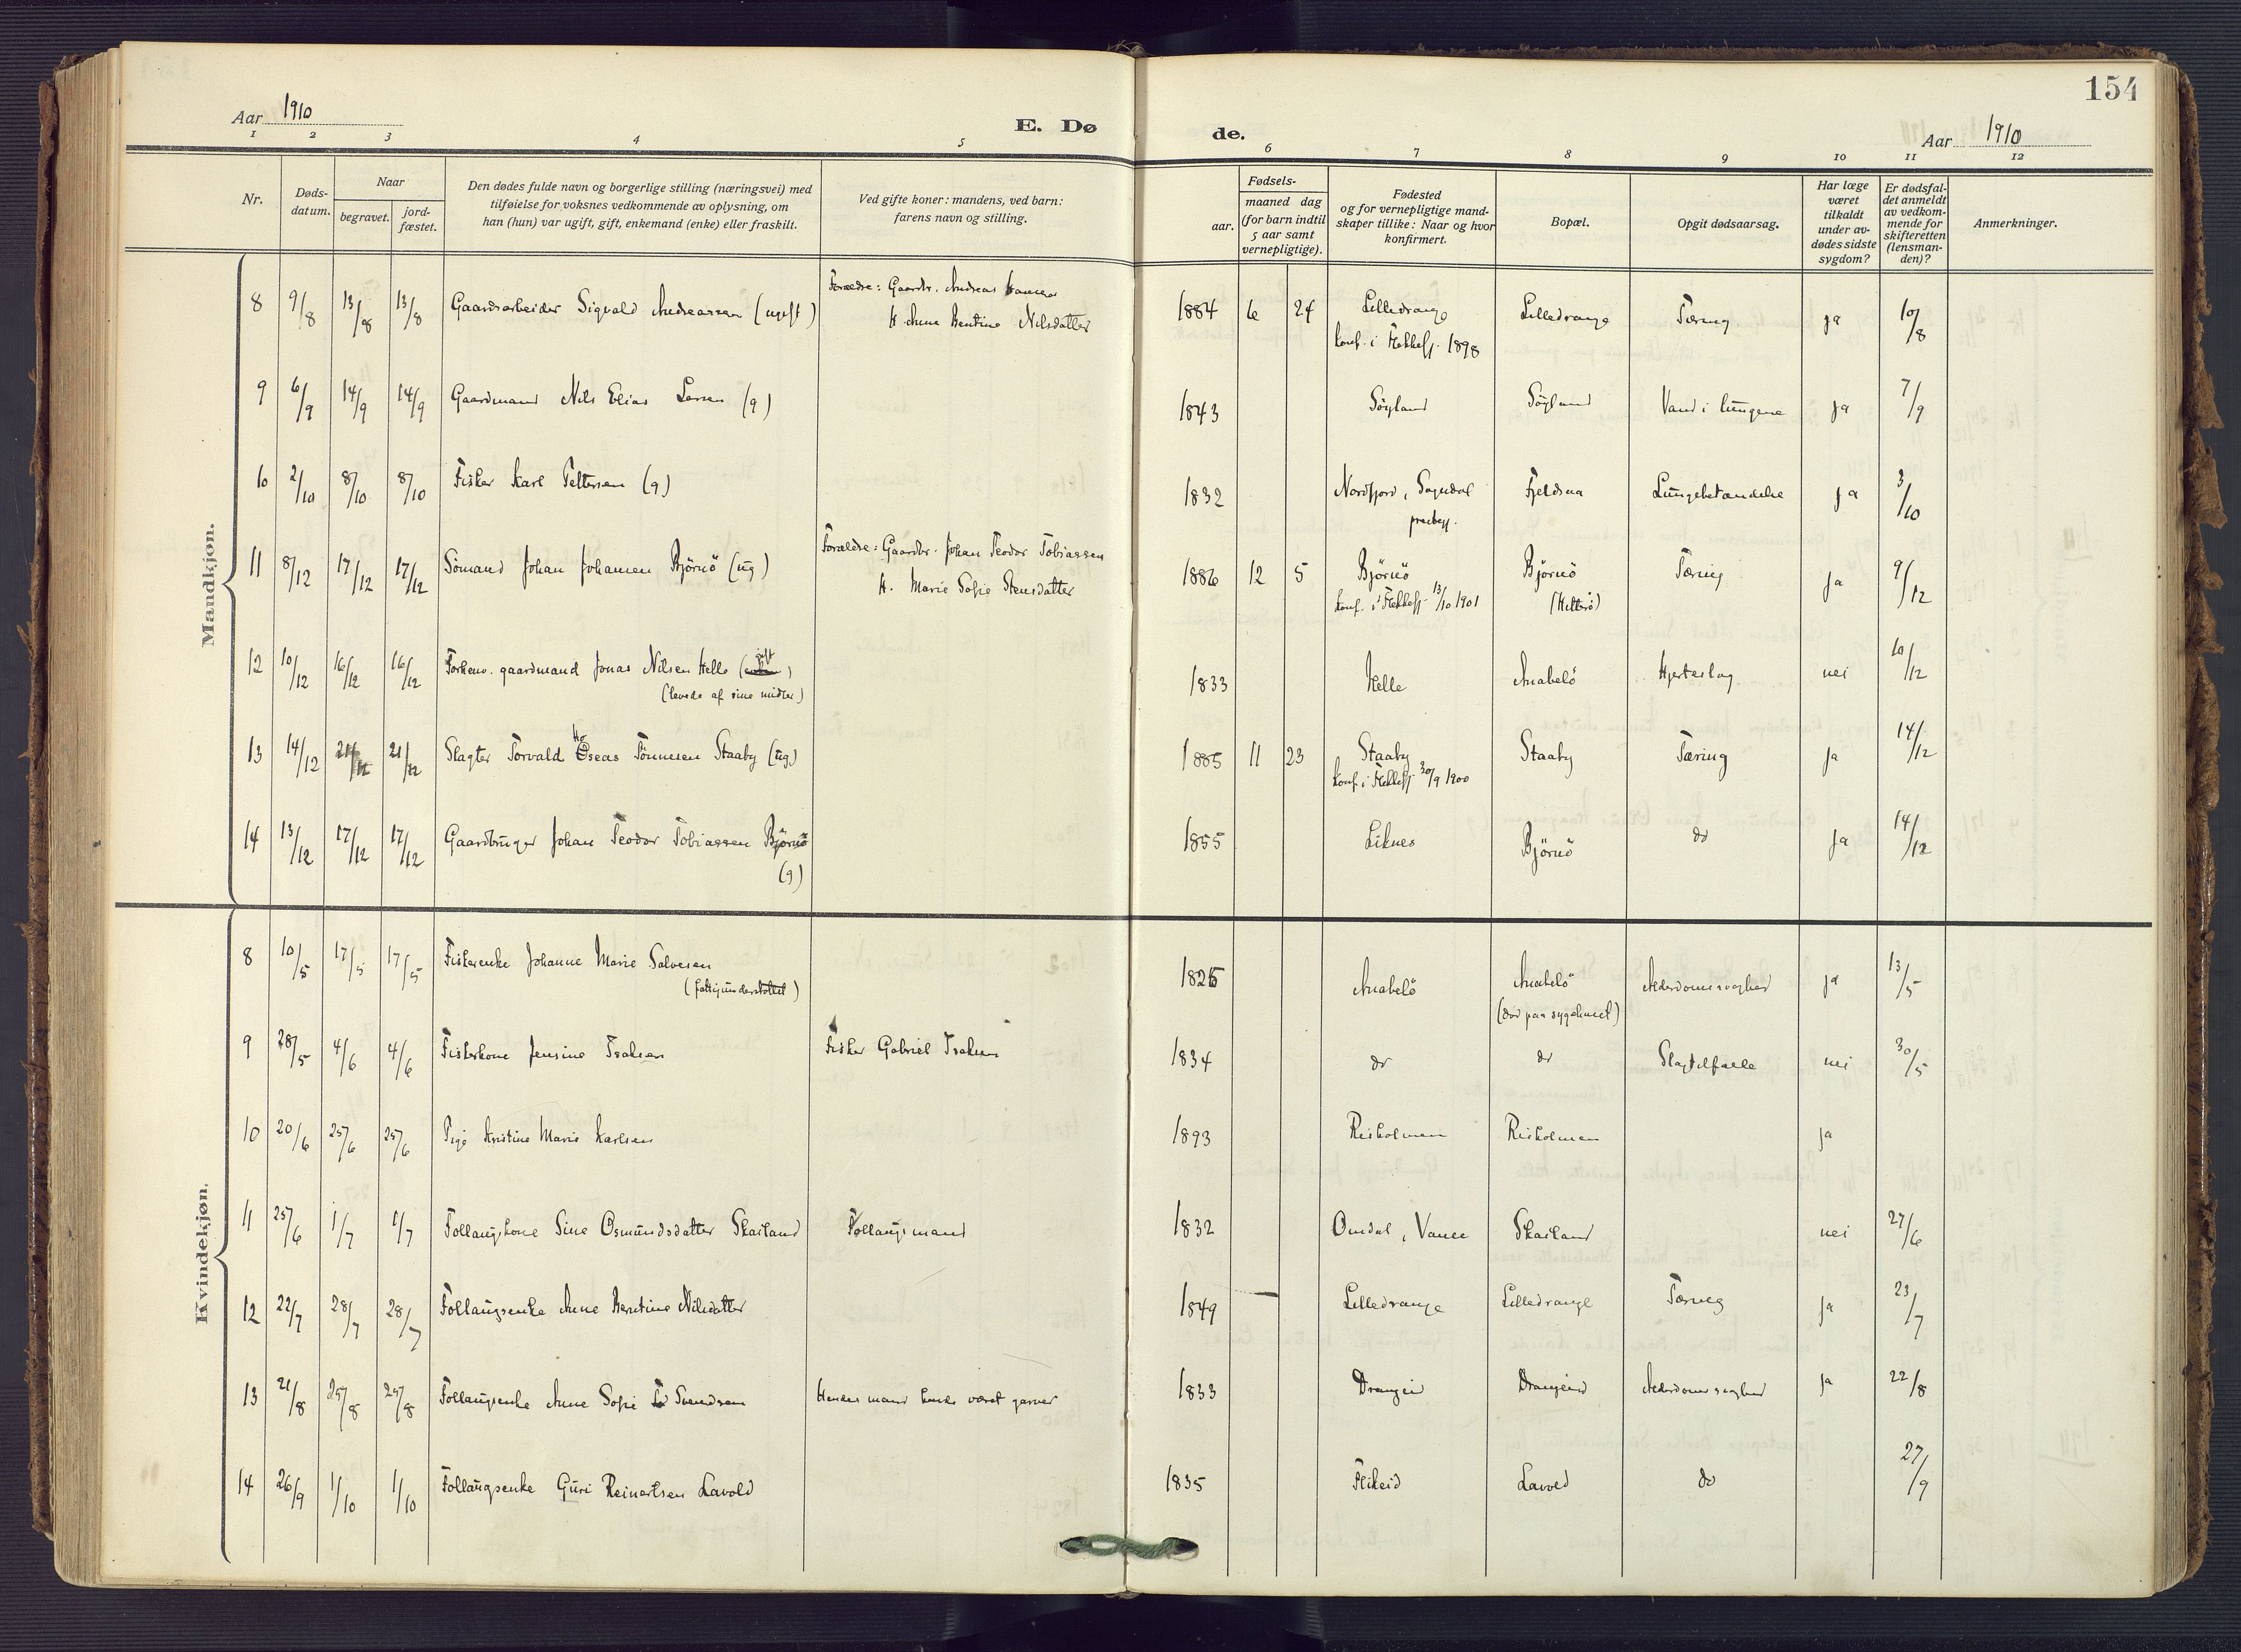 154
Aar 1910
E. Dø
de.
Aar 1910
1 2 3 4 5 6 7 8 9 10 11 12
Nr.
Døds-
datum.
Naar
begravet.
jord-
fæstet.
Den dødes fulde navn og borgerlige stilling (næringsvei) med
tilføielse for voksnes vedkommende av oplysning, om
han (hun) var ugift, gift, enkemand (enke) eller fraskilt.
Ved gifte koner: mandens, ved barn:
farens navn og stilling.
Fødsels-
aar.
maaned dag
(for barn indtil
5 aar samt
vernepligtige).
Fødested
og for vernepligtige mand-
skaper tillike: Naar og hvor
konfirmert.
Bopæl.
Opgit dødsaarsag.
Har læge
været
tilkaldt
under av-
dødes sidste
sygdom?
Er dødsfal-
det anmeldt
av vedkom-
mende for
skifteretten
(lensman-
den)?
Anmerkninger.
Mandkjøn.
8 9/8 13/8 13/8 Gaardsarbeider Sigvald Andreassen (ugift) Forældre: Gaardbr. Andreas Hansen
H. Anne Berntine Nilsdatter
1884 6 24 Lilledrange Lilledrange Tæring ja 10/8
konf. i Flekkefj. 1898
9 6/9 14/9 14/9 Gaardmand Nils Elias Larsen (g) 1843 Søyland Søyland Vand i lungene ja 7/9
10 2/10 8/10 8/10 Fisker Karl Pettersen (g) 1832 Nordfjord, Sogndal Fjeldsaa Lungebetændelse ja 3/10
prestegj.
11 8/12 17/12 17/12 Sømand Johan Johansen Bjørnö (ug) Forældre: Gaardbr. Johan Teodor Tobiassen
H. Marie Sofie Stensdatter
1886 12 5 Bjørnö Bjørnö Tæring ja 9/12
konf. i Flekkefj. 13/10 1901 (Hitterö)
12 10/12 16/12 16/12 Forhenv. gaardmand Jonas Nilsen Helle (gift) 1833 Helle Anabelö Hjerteslag nei 10/12
(levede af sine midler)
13 14/12 21/12 21/12 Slagter Torvald Hoseas Tönnesen Staaby (ug.) 1885 11 23 Staaby Staaby Tæring ja 14/12
konf. i Flekkefj 30/9 1900
14 13/12 17/12 17/12 Gaardbruger Johan Teodor Tobiassen Bjørnö 1855 Liknes Bjørnö do ja 14/12
(g)
Kvindekjøn.
8 10/5 17/5 17/5 Fiskerenke Johanne Marie Salvesen 1825 Anabelö Anabelö Alderdomssvaghed ja 13/5
(fattigunderstøttet) (død paa sygehuset)
9 28/5 4/6 4/6 Fiskerkone Jensine Isaksen Fisker Gabriel Isaksen 1834 do do Slagtilfælle nei 30/5
10 20/6 25/6 25/6 Pige Kristine Marie Karlsen 1893 Risholmen Risholmen ja
11 25/6 1/7 1/7 Follaugskone Sine Osmundsdatter Skailand Follaugsmand 1832 Omdal, Vanse Skailand nei 27/6
12 22/7 28/7 28/7 Follaugsenke Anne Berntine Nilsdatter 1849 Lilledrange Lilledrange Tæring ja 23/7
13 21/8 25/8 25/8 Follaugsenke Anne Sofie Svendsen Hendes mand havde været garver 1833 Drangeid Drangeid Alderdomssvaghed ja 22/8
14 26/9 1/10 1/10 Follaugsenke Guri Reinertsen Lavold 1835 Flikeid Lavold do 27/9